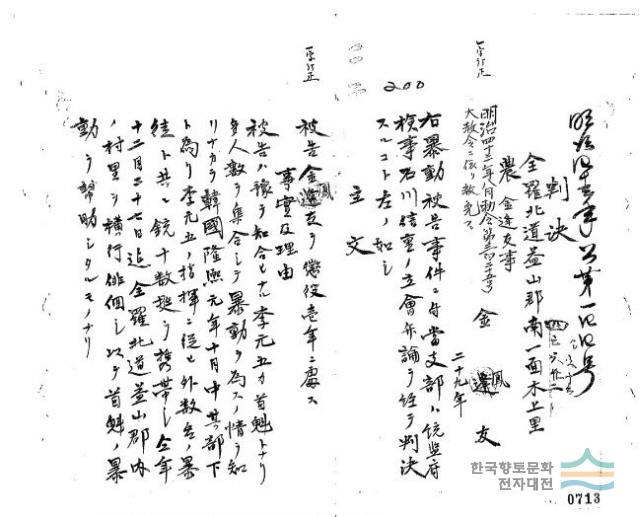 明治四十三年公第一四四号
判決
全羅北道益山郡南一面木上里
農 金逢友事
金 鳳 友
二十九年
明治四十三年八月勅令第三百二十五号
大赦令ニ依リ赦免ス
右暴動被告事件ニ付當支部ハ統監府
検事石川信重ノ立會弁論ヲ経テ判決
スルコト左ノ如シ
主文
被告金鳳友ヲ懲役壱年ニ處ス
事實及理由
被告ハ豫テ知合ヒナル李元五カ首魁トナリ
多人数ヲ集合シテ暴動ヲ為スノ情ヲ知
リナカラ韓國隆熙元年十月中其部下
ト為リ李元五ノ指揮ニ従ヒ外数名ノ暴
徒ト共ニ銃十数挺ヲ携帯シ仝年
十二月二十七日迠全羅北道益山郡内
ノ村里ヲ横行徘徊シ以テ首魁ノ暴
動ヲ幇助シタルモノナリ
200
한국향토문화
전자대전
0713